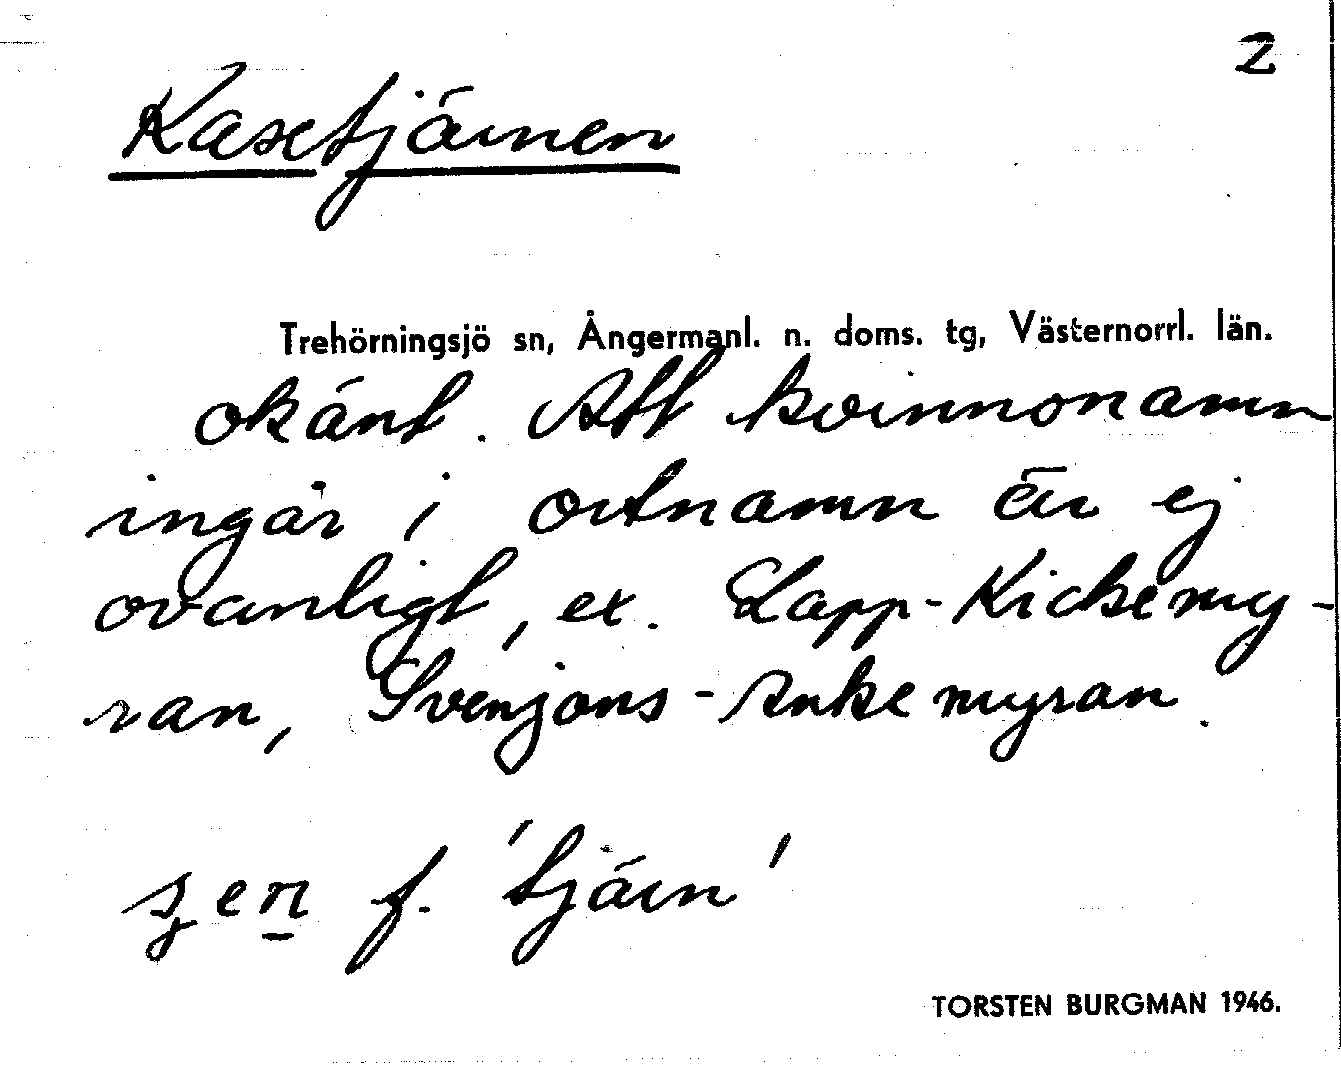 2
Kasetjärnen
Trehörningsjö sn, Ångermanl. n. doms. tg, Västernorrl. län.
okänt. Att kvinnonamn
ingår i ortnamn är ej
ovanligt, ex. Lapp-Kickemy-
ran, Svenjons-Ankemyran.
f. 'tjärn'
TORSTEN BURGMAN 1946.